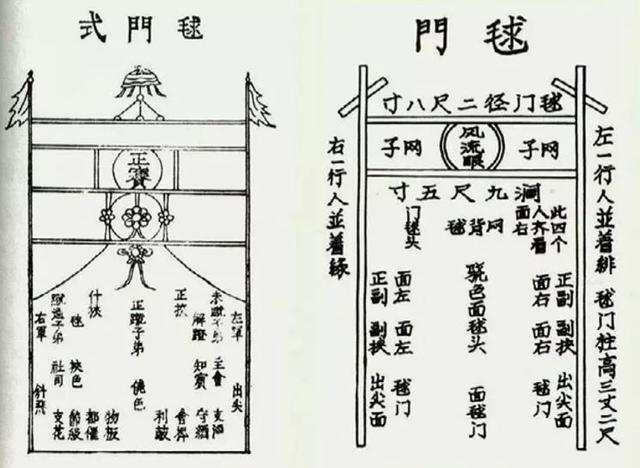 毬門式
正賓
左軍
出尖
子弟
主會
支酒
解蹬
知賓
守酒
正挾
會幹
利鼓
正蹬子弟
什挾
都催
物板
毬
挾色
節級
子弟
社司
支花
右軍
毬門
毬门径二尺八寸
网子
风流眼
网子
濶九尺五寸
左一行人並着緋
毬门柱高三丈二尺
此四个
人齐看
面右
网背毬
门毬头
正副
副挾
出尖面
面右
面右
毬门
骁色面毬头
面毬门
面左
面左
毬门
正副
副挾
出尖面
右一行人並着緑